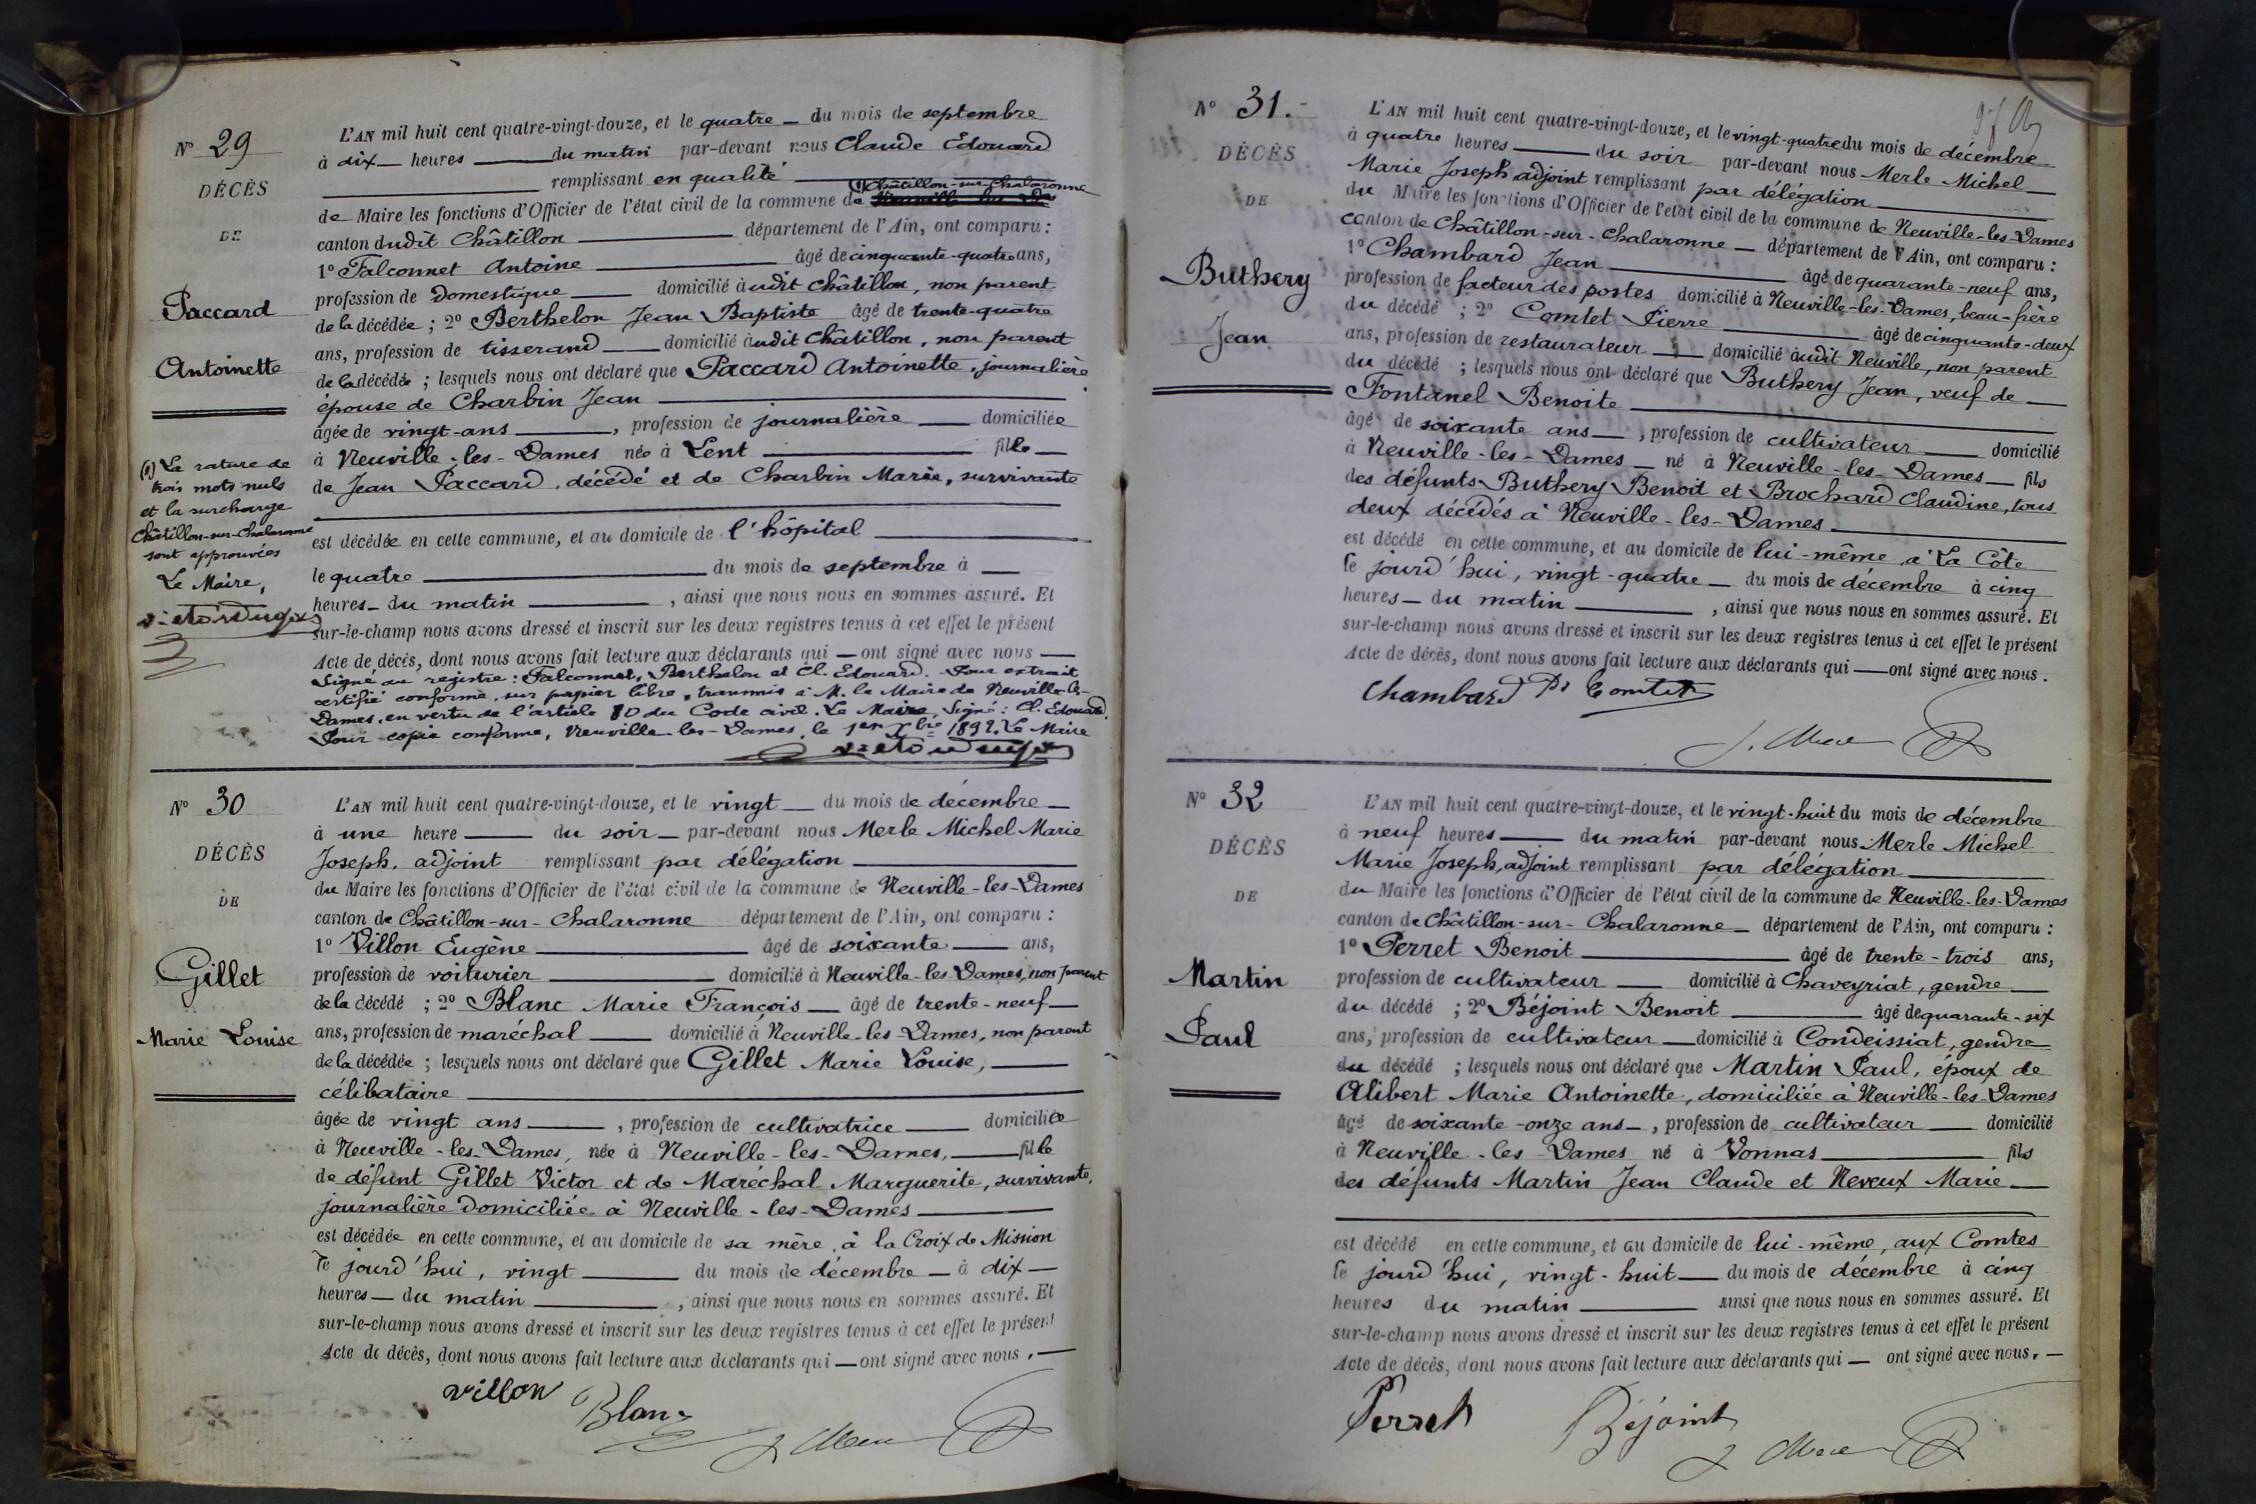 N° 29
DÉCÈS
DE
Paccard
Antoinette
(1) La rature de
trois mots nuls
et la surcharge
Châtillon-sur-Chalaronne
sont approuvées
Le Maire,
L'AN mil huit cent quatre-vingt-douze, et le quatre du mois de septembre
à dix heures du matin par-devant nous Claude Edouard
remplissant en qualité
(1) Châtillon-sur-Chalaronne
de Maire les fonctions d'Officier de l'état civil de la commune de
canton dudit Châtillon département de l'Ain, ont comparu :
1° Falconnet Antoine âgé de cinquante-quatre ans,
profession de domestique domicilié audit Châtillon, non parent
de la décédée ; 2° Berthelon Jean Baptiste âgé de trente-quatre
ans, profession de tisserand domicilié audit Châtillon, non parent
de la décédée ; lesquels nous ont déclaré que Paccard Antoinette, journalière
épouse de Charbin Jean
âgée de vingt-ans, profession de journalière domiciliée
à Neuville-les-Dames née à Lent fille
de Jean Paccard, décédé et de Charbin Marie, survivante
est décédée en cette commune, et au domicile de l'hôpital
le quatre du mois de septembre à
heures du matin, ainsi que nous nous en sommes assuré. Et
sur-le-champ nous avons dressé et inscrit sur les deux registres tenus à cet effet le présent
Acte de décès, dont nous avons fait lecture aux déclarants qui ont signé avec nous
Signé au registre : Falconnet, Berthelon et Cl. Edouard. Pour extrait
certifié conforme, sur papier libre, transmis à M. le Maire de Neuville-les-
Dames, en vertu de l'article 80 du Code civil. Le Maire, Signé : Cl. Edouard.
Pour copie conforme, Neuville-les-Dames, le 1er Xbre 1892. Le Maire
N° 30
DÉCÈS
DE
Gillet
Marie Louise
L'AN mil huit cent quatre-vingt-douze, et le vingt du mois de décembre
à une heure du soir par-devant nous Merle Michel Marie
Joseph, adjoint remplissant par délégation
du Maire les fonctions d'Officier de l'état civil de la commune de Neuville-les-Dames
canton de Châtillon-sur-Chalaronne département de l'Ain, ont comparu :
1° Villon Eugène âgé de soixante ans,
profession de voiturier domicilié à Neuville-les-Dames, non parent
de la décédé ; 2° Blanc Marie François âgé de trente-neuf
ans, profession de maréchal domicilié à Neuville-les-Dames, non parent
de la décédée ; lesquels nous ont déclaré que Gillet Marie Louise,
célibataire
âgée de vingt ans, profession de cultivatrice domiciliée
à Neuville-les-Dames, née à Neuville-les-Dames, fille
de défunt Gillet Victor et de Maréchal Marguerite, survivante,
journalière domiciliée à Neuville-les-Dames
est décédée en cette commune, et au domicile de sa mère, à la Croix de Mission
le jourd'hui, vingt du mois de décembre à dix
heures du matin, ainsi que nous nous en sommes assuré. Et
sur-le-champ nous avons dressé et inscrit sur les deux registres tenus à cet effet le présent
Acte de décès, dont nous avons fait lecture aux déclarants qui ont signé avec nous.
Villon Blanc J. Merle
N° 31.
DÉCÈS
DE
Buthery
Jean
L'AN mil huit cent quatre-vingt-douze, et le vingt-quatre du mois de décembre
à quatre heures du soir par-devant nous Merle Michel
Marie Joseph adjoint remplissant par délégation
du Maire les fonctions d'Officier de l'état civil de la commune de Neuville-les-Dames
canton de Châtillon-sur-Chalaronne département de l'Ain, ont comparu :
1° Chambard Jean âgé de quarante-neuf ans,
profession de facteur des postes domicilié à Neuville-les-Dames, beau-frère
du décédé ; 2° Comtet Pierre âgé de cinquante-deux
ans, profession de restaurateur domicilié audit Neuville, non parent
du décédé ; lesquels nous ont déclaré que Buthery Jean, veuf de
Fontanel Benoite
âgé de soixante ans, profession de cultivateur domicilié
à Neuville-les-Dames né à Neuville-les-Dames fils
des défunts Buthery Benoit et Brochard Claudine, tous
deux décédés à Neuville-les-Dames
est décédé en cette commune, et au domicile de lui-même, à La Côte
le jourd'hui, vingt-quatre du mois de décembre à cinq
heures du matin, ainsi que nous nous en sommes assuré. Et
sur-le-champ nous avons dressé et inscrit sur les deux registres tenus à cet effet le présent
Acte de décès, dont nous avons fait lecture aux déclarants qui ont signé avec nous.
Chambard Pr Comtet
J. Merle
N° 32
DÉCÈS
DE
Martin
Paul
L'AN mil huit cent quatre-vingt-douze, et le vingt-huit du mois de décembre
à neuf heures du matin par-devant nous Merle Michel
Marie Joseph, adjoint remplissant par délégation
du Maire les fonctions d'Officier de l'état civil de la commune de Neuville-les-Dames
canton de Châtillon-sur-Chalaronne département de l'Ain, ont comparu :
1° Perret Benoit âgé de trente-trois ans,
profession de cultivateur domicilié à Chaveyriat, gendre
du décédé ; 2° Béjoint Benoit âgé de quarante-six
ans, profession de cultivateur domicilié à Condeissiat, gendre
du décédé ; lesquels nous ont déclaré que Martin Paul, époux de
Alibert Marie Antoinette, domiciliée à Neuville-les-Dames
âgé de soixante-onze ans, profession de cultivateur domicilié
à Neuville-les-Dames né à Vonnas fils
des défunts Martin Jean Claude et Neveux Marie
est décédé en cette commune, et au domicile de lui-même, aux Comtes
le jourd'hui, vingt-huit du mois de décembre à cinq
heures du matin ainsi que nous nous en sommes assuré. Et
sur-le-champ nous avons dressé et inscrit sur les deux registres tenus à cet effet le présent
Acte de décès, dont nous avons fait lecture aux déclarants qui ont signé avec nous.
Perret Béjoint
J. Merle